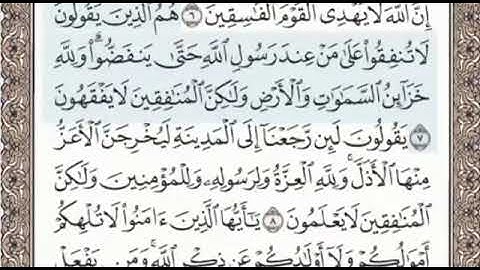 إِنَّ ٱللَّهَ لَا يَهْدِى ٱلْقَوْمَ ٱلْفَـٰسِقِينَ ٦ هُمُ ٱلَّذِينَ يَقُولُونَ
لَا تُنفِقُوا۟ عَلَىٰ مَنْ عِندَ رَسُولِ ٱللَّهِ حَتَّىٰ يَنفَضُّوا۟ ۗ وَلِلَّهِ
خَزَآئِنُ ٱلسَّمَـٰوَٰتِ وَٱلْأَرْضِ وَلَـٰكِنَّ ٱلْمُنَـٰفِقِينَ لَا يَفْقَهُونَ
٧ يَقُولُونَ لَئِن رَّجَعْنَآ إِلَى ٱلْمَدِينَةِ لَيُخْرِجَنَّ ٱلْأَعَزُّ
مِنْهَا ٱلْأَذَلَّ ۚ وَلِلَّهِ ٱلْعِزَّةُ وَلِرَسُولِهِۦ وَلِلْمُؤْمِنِينَ وَلَـٰكِنَّ
ٱلْمُنَـٰفِقِينَ لَا يَعْلَمُونَ ٨ يَـٰٓأَيُّهَا ٱلَّذِينَ ءَامَنُوا۟ لَا تُلْهِكُمْ
أَمْوَٰلُكُمْ وَلَآ أَوْلَـٰدُكُمْ عَن ذِكْرِ ٱللَّهِ ۚ وَمَن يَفْعَلْ